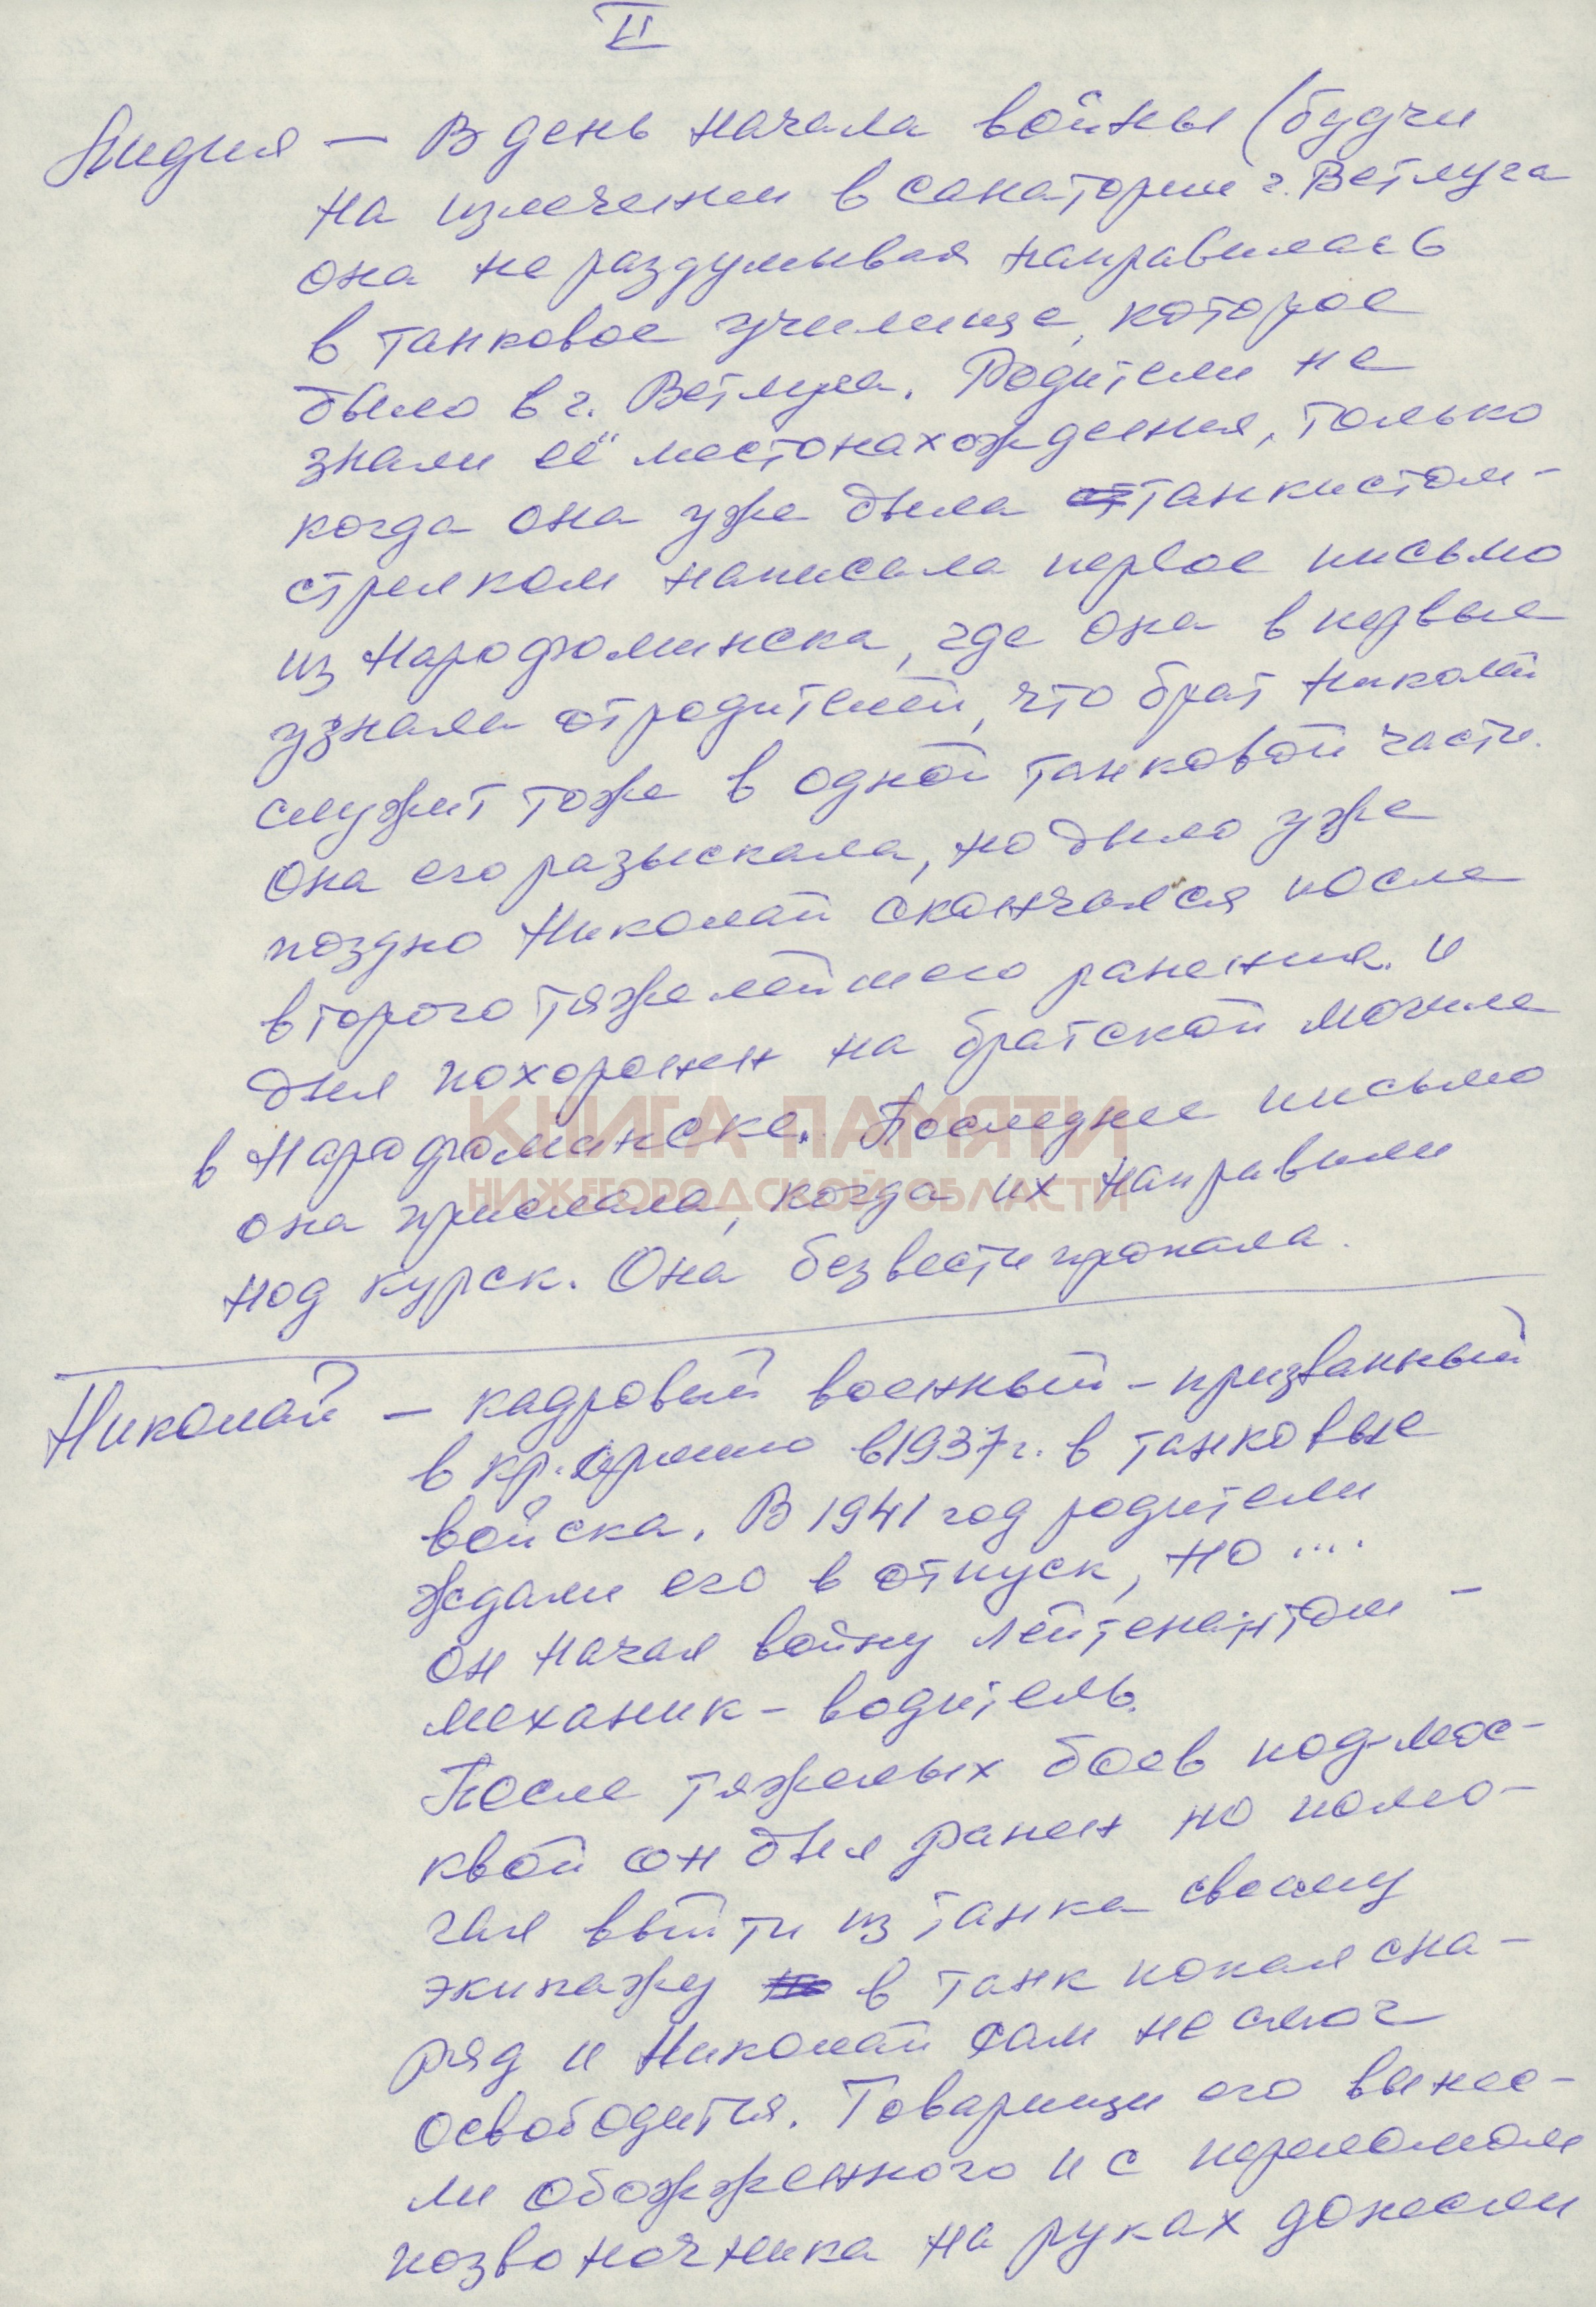 II
Лидия — В день начала войны (будучи
на излечении в санатории г. Ветлуга
она не раздумывая направилась
в танковое училище, которое
было в г. Ветлуга. Родители не
знали её местонахождения, только
когда она уже была танкистом-
стрелком написала первое письмо
из Нарофоминска, где она впервые
узнала от родителей, что брат Николай
служит тоже в одной танковой части.
Она его разыскала, но было уже
поздно Николай скончался после
второго тяжелейшего ранения. и
был похоронен на братской могиле
в Нарофоминске. Последнее письмо
КНИГА ПАМЯТИ
НИЖЕГОРОДСКОЙ ОБЛАСТИ
она прислала, когда их направили
под Курск. Она безвести пропала.
Николай — кадровый военный - призванный
в кр. армию в 1937 г. в танковые
войска. В 1941 год родители
ждали его в отпуск, но ....
он начал войну лейтенантом -
механик - водитель.
После тяжелых боев под Мос-
квой он был ранен но помо-
гая выйти из танка своему
экипажу в танк попал сна-
ряд и Николай сам не смог
освободится. Товарищи его вынес-
ли обожженного и с переломом
позвоночника на руках донесли